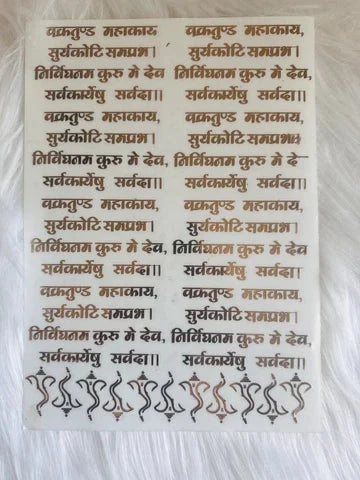 वक्रतुण्ड महाकाय,
सुर्यकोटि समप्रभ।
निर्विघनम कुरु मे देव,
सर्वकार्येषु सर्वदा।।
वक्रतुण्ड महाकाय,
सुर्यकोटि समप्रभ।
निर्विघनम कुरु मे देव,
सर्वकार्येषु सर्वदा।।
वक्रतुण्ड महाकाय,
सुर्यकोटि समप्रभ।
निर्विघनम कुरु मे देव,
सर्वकार्येषु सर्वदा।।
वक्रतुण्ड महाकाय,
सुर्यकोटि समप्रभ।
निर्विघनम कुरु मे देव,
सर्वकार्येषु सर्वदा।।
वक्रतुण्ड महाकाय,
सुर्यकोटि समप्रभ।
निर्विघनम कुरु मे देव,
सर्वकार्येषु सर्वदा।।
वक्रतुण्ड महाकाय,
सुर्यकोटि समप्रभ।
निर्विघनम कुरु मे
सर्वकार्येषु सर्वदा।।
वक्रतुण्ड महाकाय,
सुर्यकोटि समप्रभ।
निर्विघनम कुरु मे देव
सर्वकार्येषु सर्वदा।
वक्रतुण्ड महाकाय,
सुर्यकोटि समप्रभ।
निर्विघनम कुरु मे देव,
सर्वकार्येषु सर्वदा।।